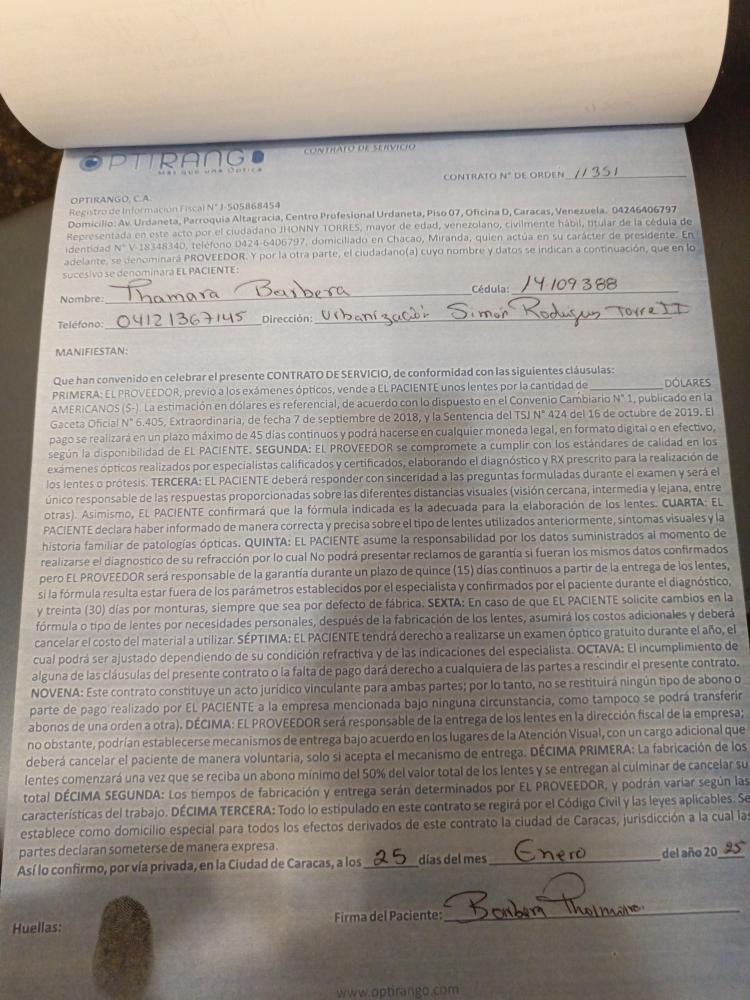 ÓPTIRANGO
Más que una Óptica
CONTRATO DE SERVICIO
CONTRATO N° DE ORDEN 11351
OPTIRANGO, C.A.
Registro de Información Fiscal N° J-505868454
Domicilio: Av. Urdaneta, Parroquia Altagracia, Centro Profesional Urdaneta, Piso 07, Oficina D, Caracas, Venezuela. 04246406797
Representada en este acto por el ciudadano JHONNY TORRES, mayor de edad, venezolano, civilmente hábil, titular de la cédula de
identidad N° V-18348340, teléfono 0424-6406797, domiciliado en Chacao, Miranda, quien actúa en su carácter de presidente. En
adelante, se denominará PROVEEDOR. Y por la otra parte, el ciudadano(a) cuyo nombre y datos se indican a continuación, que en lo
sucesivo se denominará EL PACIENTE:
Nombre: Thamara Barbera Cédula: 14109388
Teléfono: 04121367145 Dirección: Urbanización Simón Rodrigues Torre II
MANIFIESTAN:
Que han convenido en celebrar el presente CONTRATO DE SERVICIO, de conformidad con las siguientes cláusulas:
PRIMERA: EL PROVEEDOR, previo a los exámenes ópticos, vende a EL PACIENTE unos lentes por la cantidad de ____________ DÓLARES
AMERICANOS ($-). La estimación en dólares es referencial, de acuerdo con lo dispuesto en el Convenio Cambiario N° 1, publicado en la
Gaceta Oficial N° 6.405, Extraordinaria, de fecha 7 de septiembre de 2018, y la Sentencia del TSJ N° 424 del 16 de octubre de 2019. El
pago se realizará en un plazo máximo de 45 días continuos y podrá hacerse en cualquier moneda legal, en formato digital o en efectivo,
según la disponibilidad de EL PACIENTE. SEGUNDA: EL PROVEEDOR se compromete a cumplir con los estándares de calidad en los
exámenes ópticos realizados por especialistas calificados y certificados, elaborando el diagnóstico y RX prescrito para la realización de
los lentes o prótesis. TERCERA: EL PACIENTE deberá responder con sinceridad a las preguntas formuladas durante el examen y será el
único responsable de las respuestas proporcionadas sobre las diferentes distancias visuales (visión cercana, intermedia y lejana, entre
otras). Asimismo, EL PACIENTE confirmará que la fórmula indicada es la adecuada para la elaboración de los lentes. CUARTA: EL
PACIENTE declara haber informado de manera correcta y precisa sobre el tipo de lentes utilizados anteriormente, síntomas visuales y la
historia familiar de patologías ópticas. QUINTA: EL PACIENTE asume la responsabilidad por los datos suministrados al momento de
realizarse el diagnostico de su refracción por lo cual No podrá presentar reclamos de garantía si fueran los mismos datos confirmados
pero EL PROVEEDOR será responsable de la garantía durante un plazo de quince (15) días continuos a partir de la entrega de los lentes,
si la fórmula resulta estar fuera de los parámetros establecidos por el especialista y confirmados por el paciente durante el diagnóstico,
y treinta (30) días por monturas, siempre que sea por defecto de fábrica. SEXTA: En caso de que EL PACIENTE solicite cambios en la
fórmula o tipo de lentes por necesidades personales, después de la fabricación de los lentes, asumirá los costos adicionales y deberá
cancelar el costo del material a utilizar. SÉPTIMA: EL PACIENTE tendrá derecho a realizarse un examen óptico gratuito durante el año, el
cual podrá ser ajustado dependiendo de su condición refractiva y de las indicaciones del especialista. OCTAVA: El incumplimiento de
alguna de las cláusulas del presente contrato o la falta de pago dará derecho a cualquiera de las partes a rescindir el presente contrato.
NOVENA: Este contrato constituye un acto jurídico vinculante para ambas partes; por lo tanto, no se restituirá ningún tipo de abono o
parte de pago realizado por EL PACIENTE a la empresa mencionada bajo ninguna circunstancia, como tampoco se podrá transferir
abonos de una orden a otra). DÉCIMA: EL PROVEEDOR será responsable de la entrega de los lentes en la dirección fiscal de la empresa;
no obstante, podrían establecerse mecanismos de entrega bajo acuerdo en los lugares de la Atención Visual, con un cargo adicional que
deberá cancelar el paciente de manera voluntaria, solo si acepta el mecanismo de entrega. DÉCIMA PRIMERA: La fabricación de los
lentes comenzará una vez que se reciba un abono mínimo del 50% del valor total de los lentes y se entregan al culminar de cancelar su
total DÉCIMA SEGUNDA: Los tiempos de fabricación y entrega serán determinados por EL PROVEEDOR, y podrán variar según las
características del trabajo. DÉCIMA TERCERA: Todo lo estipulado en este contrato se regirá por el Código Civil y las leyes aplicables. Se
establece como domicilio especial para todos los efectos derivados de este contrato la ciudad de Caracas, jurisdicción a la cual las
partes declaran someterse de manera expresa.
Así lo confirmo, por vía privada, en la Ciudad de Caracas, a los 25 días del mes Enero del año 20 25
Firma del Paciente: Barbera Thamara
Huellas:
www.optirango.com